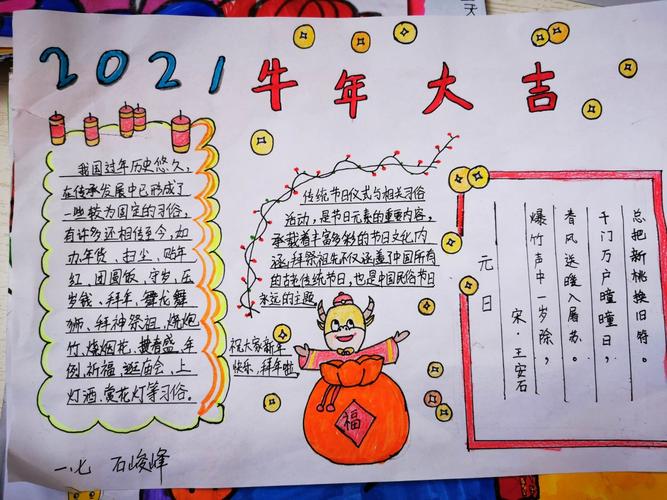 2021 牛年大吉
我国过年历史悠久,
在传承发展中已形成了
一些较为固定的习俗,
有许多还相传至今,如
办年货、扫尘、贴年
红、团圆饭、守岁、压
岁钱、拜年、舞龙舞
狮、拜神祭祖、烧炮
竹、烧烟花、
例、祈福、逛庙会、上
灯酒、赏花灯等习俗。
传统节日仪式与相关习俗
活动,是节日元素的重要内容,
承载着丰富多彩的节日文化内
涵,拜祭祖先不仅涵盖了中国所有
的古老传统节日,也是中国民俗节日
永远的主题。
祝大家新年
快乐,拜年啦
福
元日
宋·王安石
爆竹声中一岁除,
春风送暖入屠苏。
千门万户曈曈日,
总把新桃换旧符。
一.七 石峻峰
天